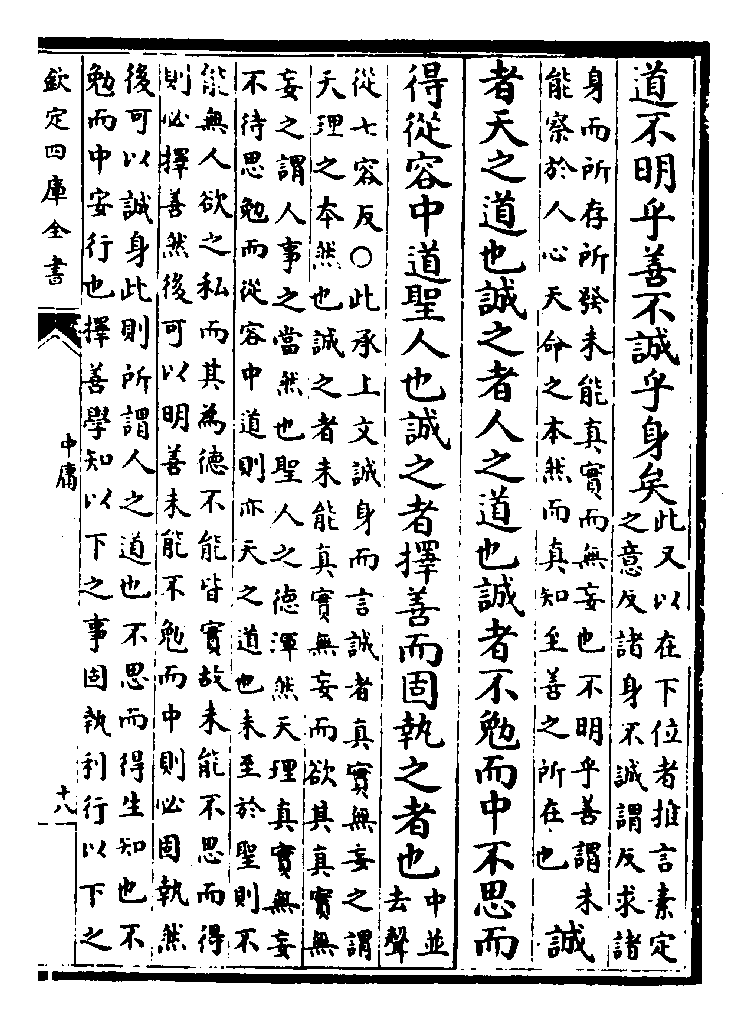 道不明乎善不誠乎身矣此又以在下位者推言素定
之意反諸身不誠謂反求諸
身而所存所發未能真實而無妄也不明乎善謂未
能察於人心天命之本然而真知至善之所在也
誠
者天之道也誠之者人之道也誠者不勉而中不思而
得從容中道聖人也誠之者擇善而固執之者也中並
去聲
從七容反○此承上文誠身而言誠者真實無妄之謂
天理之本然也誠之者未能真實無妄而欲其真實無
妄之謂人事之當然也聖人之德渾然天理真實無妄
不待思勉而從容中道則亦天之道也未至於聖則不
能無人欲之私而其為德不能皆實故未能不思而得
則必擇善然後可以明善未能不勉而中則必固執然
後可以誠身此則所謂人之道也不思而得生知也不
勉而中安行也擇善學知以下之事固執利行以下之
欽定四庫全書
中庸
十八